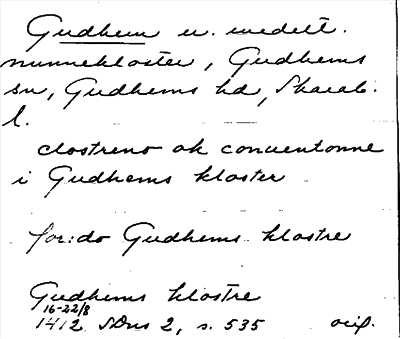 Gudhem u. medelt.
nunnekloster, Gudhems
sn, Gudhems hd, Skarab.
l.
clostreno ok conuentonne
i Gudhems kloster
for:do Gudhems klostre
Gudhems klostre
16-22/8
1412 SDns 2, s. 535 orig.